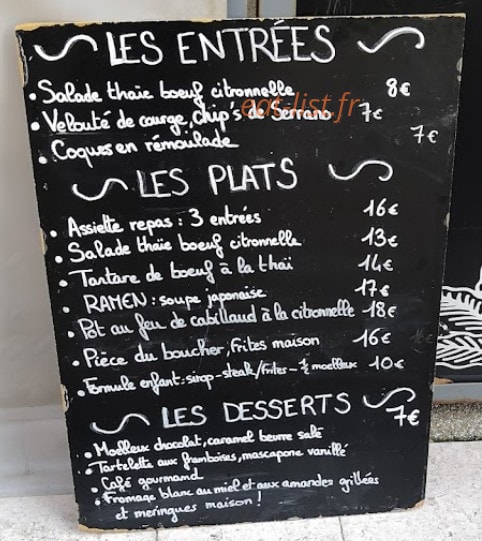 LES ENTRÉES
• Salade thaïe boeuf citronnelle 8€
• Velouté de courge, chip's de Serrano 7€
• Coques en rémoulade 7€
eat-list.fr
LES PLATS
• Assiette repas : 3 entrées 16€
• Salade thaïe boeuf citronnelle 13€
• Tartare de boeuf à la thaï 14€
• RAMEN : soupe japonaise 17€
• Pot au feu de cabillaud à la citronnelle 18€
• Pièce du boucher, frites maison 16€
• Formule enfant : sirop - steak/frites - ½ moelleux 10€
LES DESSERTS 7€
• Moelleux chocolat, caramel beurre salé
• Tartelette aux framboises, mascapone vanillé
• Café gourmand
• Fromage blanc au miel et aux amandes grillées
et meringues maison !